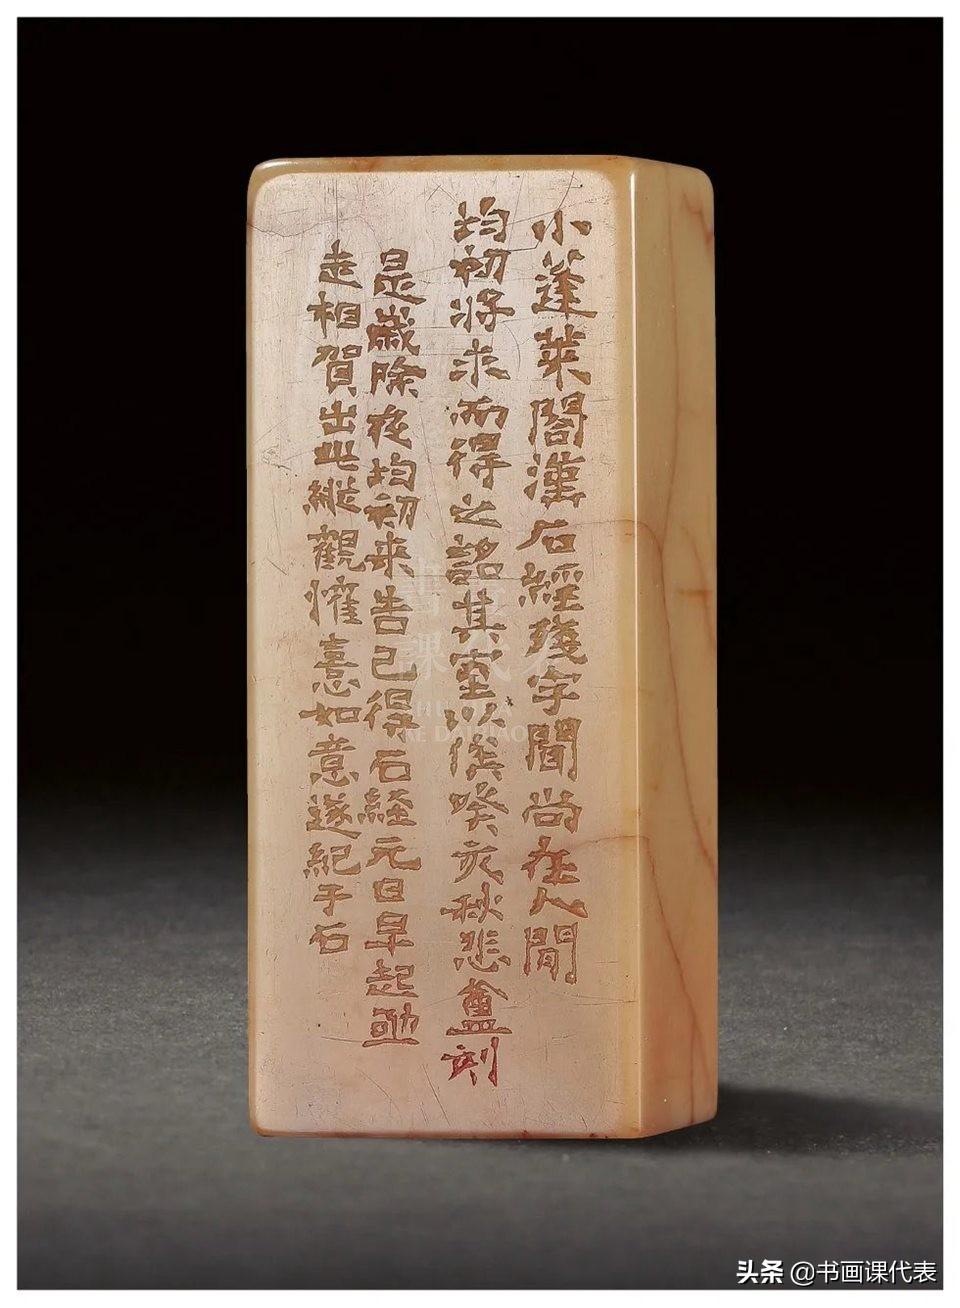 小蓬萊閣漢石經殘字聞尚在人間
均初將求而得之銘其室以俟癸亥秋悲盦刻
是歲除夜均初来告已得石経元日早起亟
走相賀出此縱觀懽憙如意遂紀于石
書畫
課代表
SHU HUA
KE DAIBIAO
头条 @书画课代表